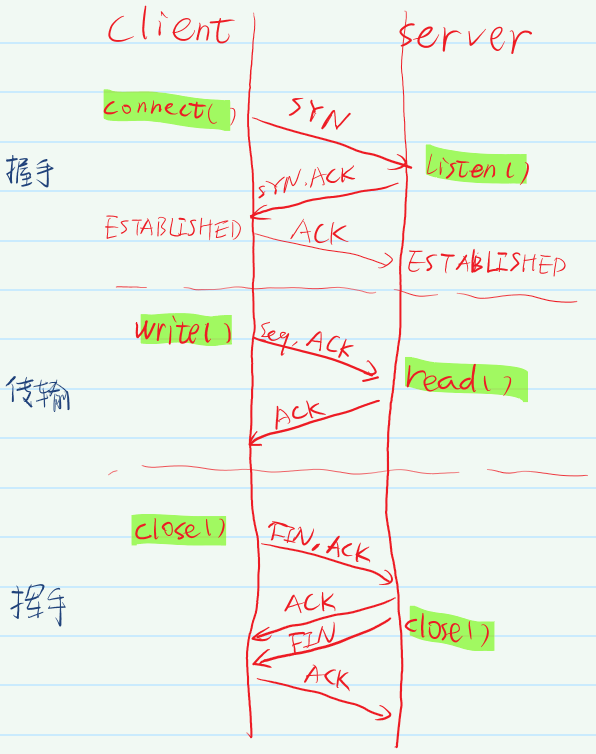 client server
connect()
SYN
握手
Listen()
SYN.ACK
ESTABLISHED
ACK
ESTABLISHED
write()
seq, ACK
read()
传输
ACK
close()
FIN, ACK
挥手
ACK
close()
FIN
ACK